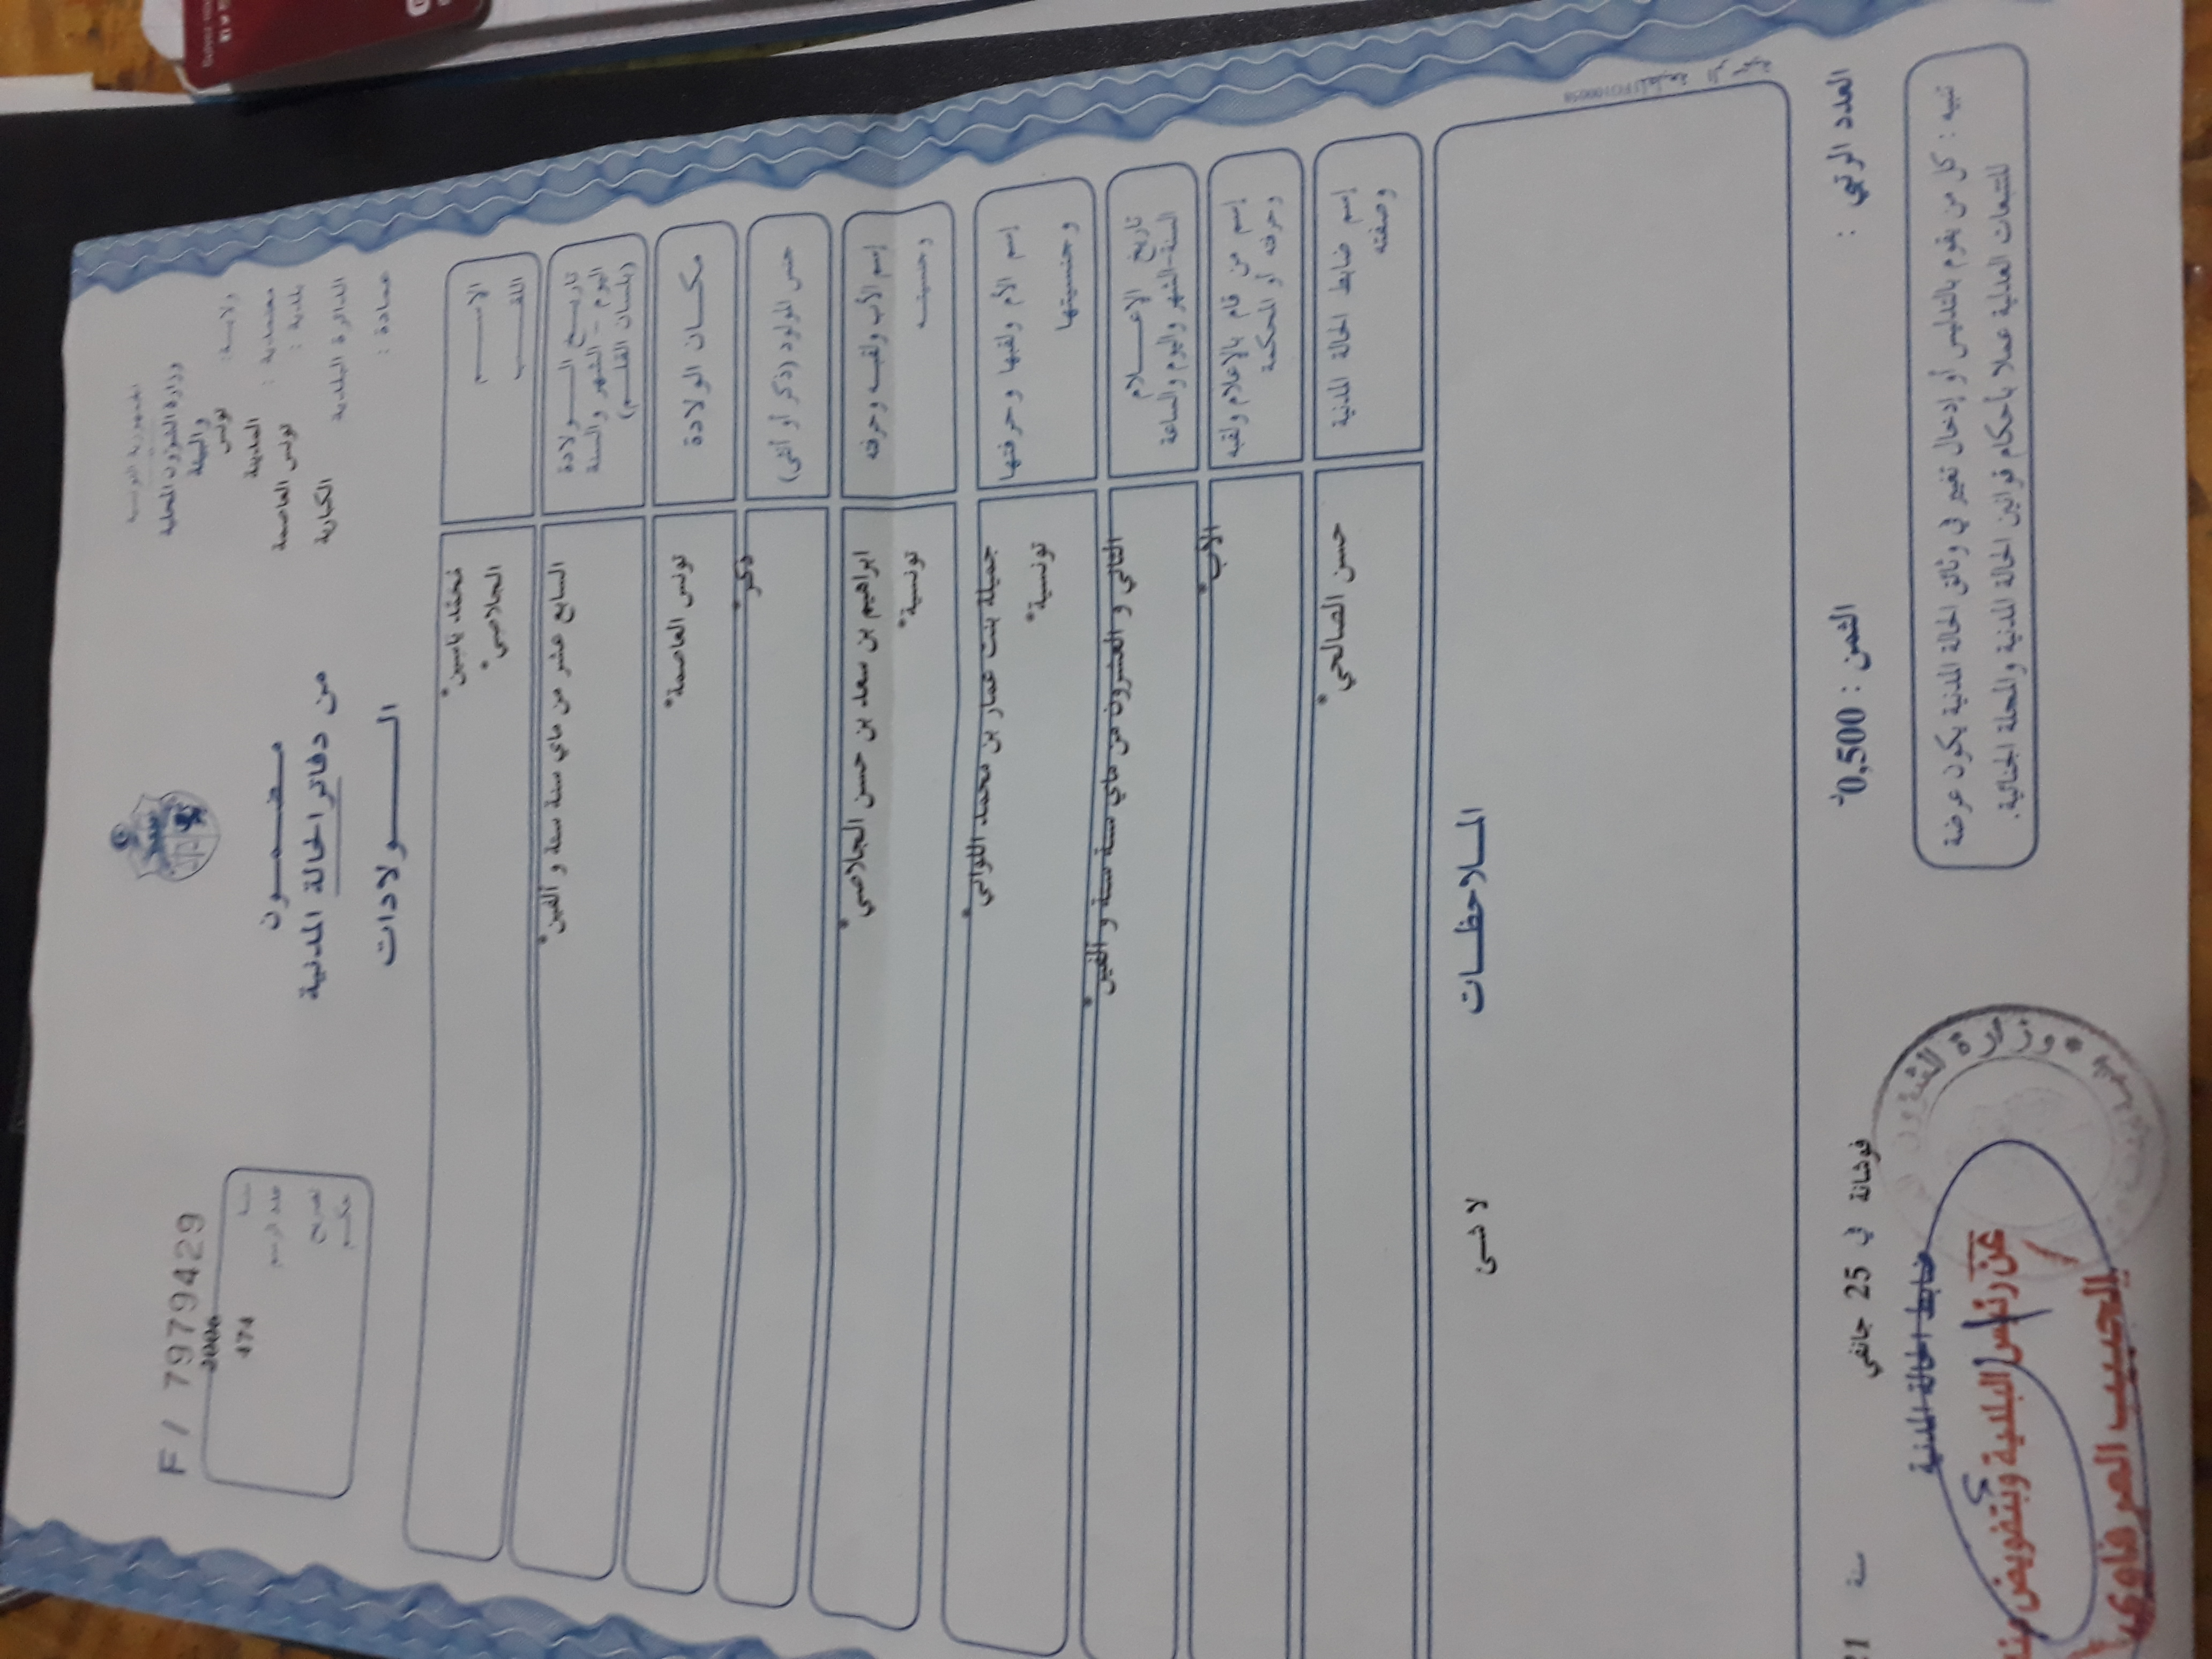 الجمهورية التونسية
وزارة الشؤون المحلية
والبيئة
ولايـــة: تونس
معتمدية : المدينة
بلدية : تونس العاصمة
الدائرة البلدية الكبارية
عمادة :
F / 7979429
سنـــة 2006
عدد الرسم 474
تصريح
حكـــم
مـضـمـــون
من دفاتر الحالة المدنية
الـــــولادات
الاســـــم محمد ياسين
اللقـــــب الجلاصي
تاريـــخ الـــــولادة
اليوم - الشهر والسنة
(بلسان القلـــم)
السابع عشر من ماي سنة ستة و ألفين
مكـــان الولادة تونس العاصمة
جنس المولود (ذكر أو أنثى) ذكر
إسم الأب ولقبـــه وحرفته ابراهيم بن سعد بن حسن الجلاصي
وجنسيتـــه تونسية
إسم الأم ولقبها وحرفتها جميلة بنت عمار بن محمد اللواتي
وجنسيتها تونسية
تاريخ الاعـــــلام
السنة-الشهر واليوم والساعة
الثاني و العشرون من ماي سنة ستة و ألفين
إسم من قام بالاعلام ولقبه
وحرفته أو المحكمة
الأب
إسم ضابط الحالة المدنية
وصفته
حسن الصالحي
المـــلاحظـــات
لا شـــئ
العدد الرتبي :
الثمن : 0,500د
فوشانة في 25 جانفي سنة 21
ضابط الحالة المدنية
عن رئيس البلدية وبتفويض منه
الحبيب العرفاوي
تنبيه : كل من يقوم بالتدليس أو إدخال تغيير في وثائق الحالة المدنية يكون عرضة
للتتبعات العدلية عملا بأحكام قوانين الحالة المدنية والمجلة الجنائية.